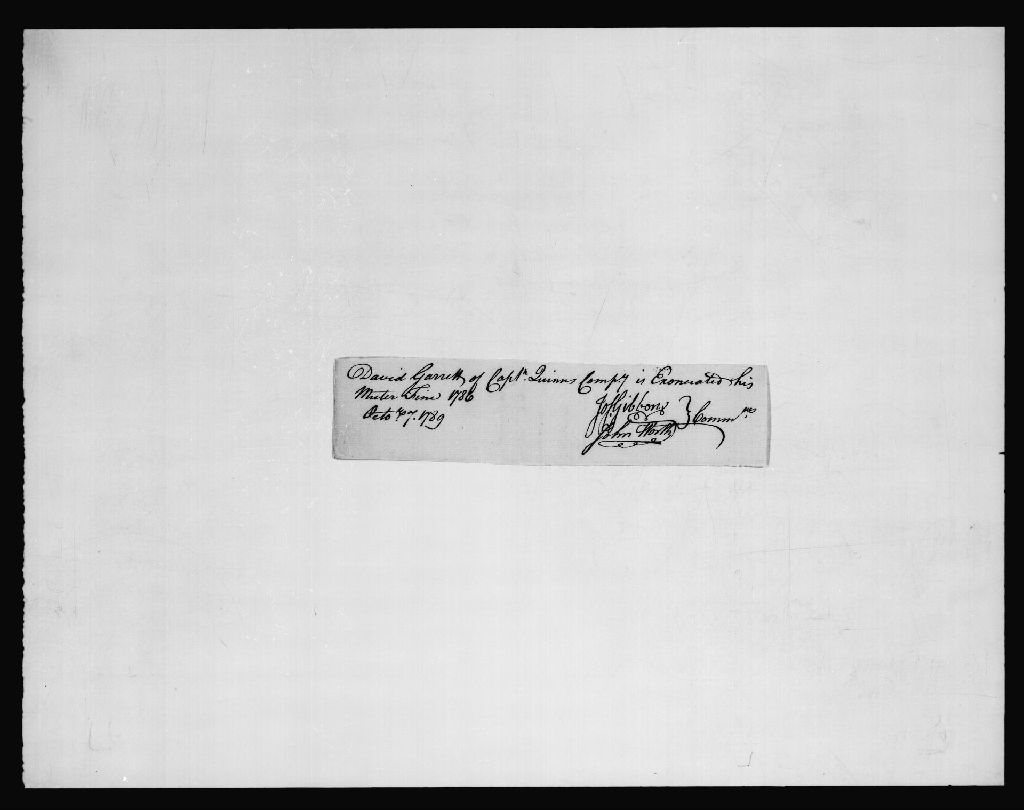 David Garrett of Capt.n Quinns Comp.y is Exonerated his
Muster Fine 1786
Octo 7. 1789
Jos Gibbons } Comm.rs
John Worth